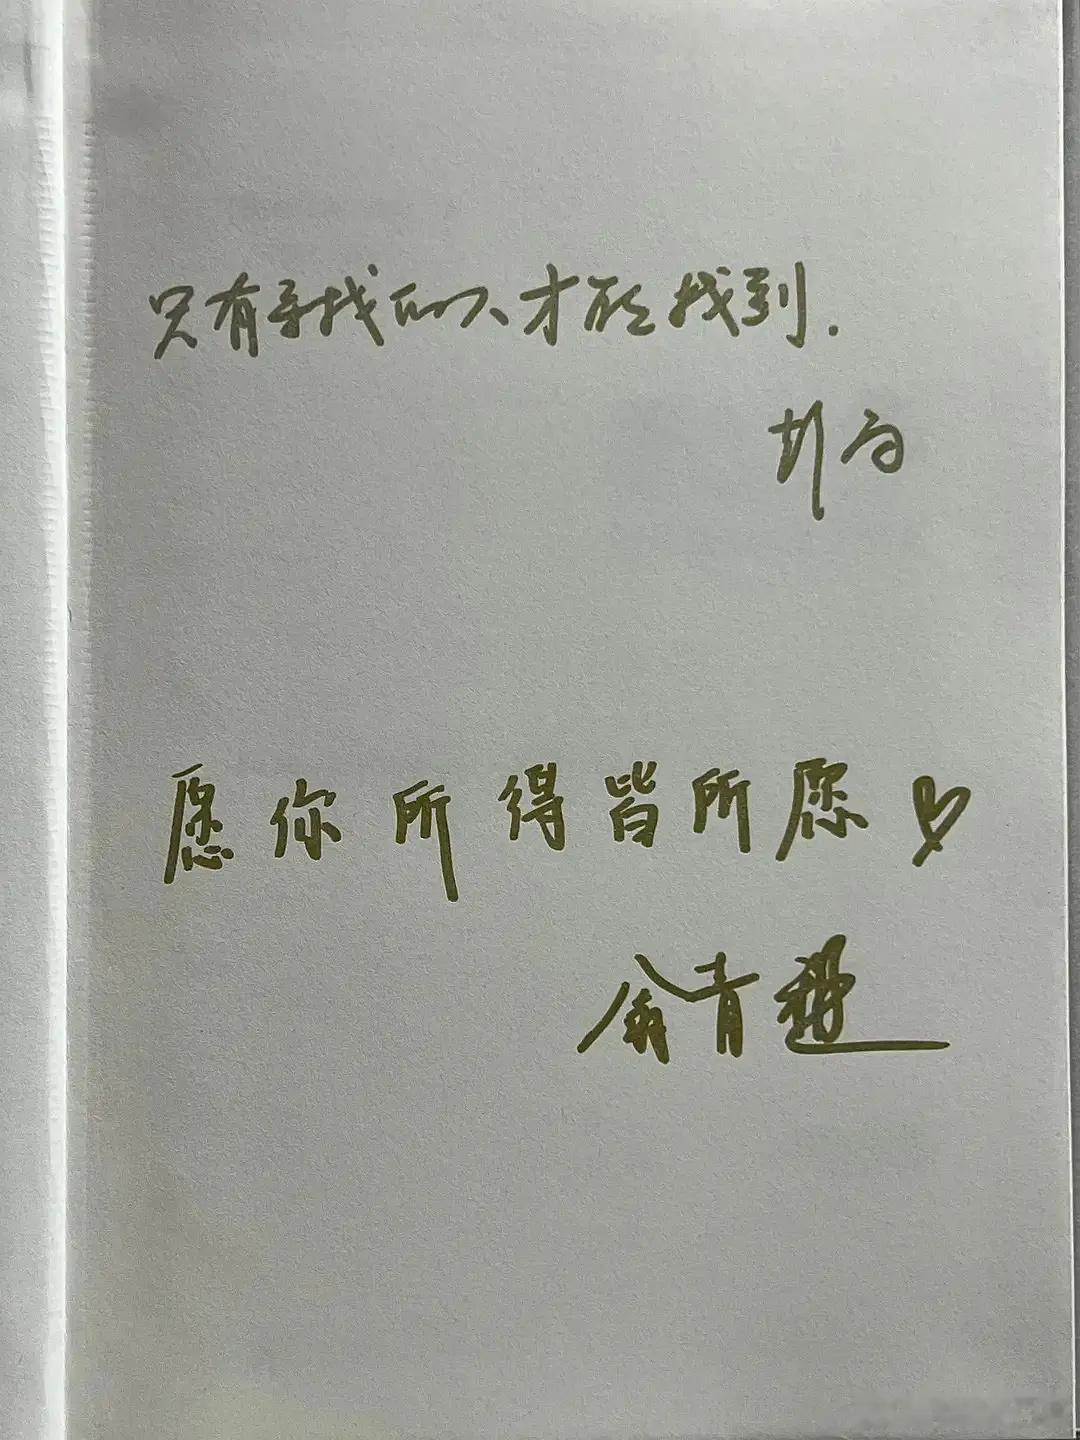 只有寻找的人才能找到.
愿你所得皆所愿
翁青